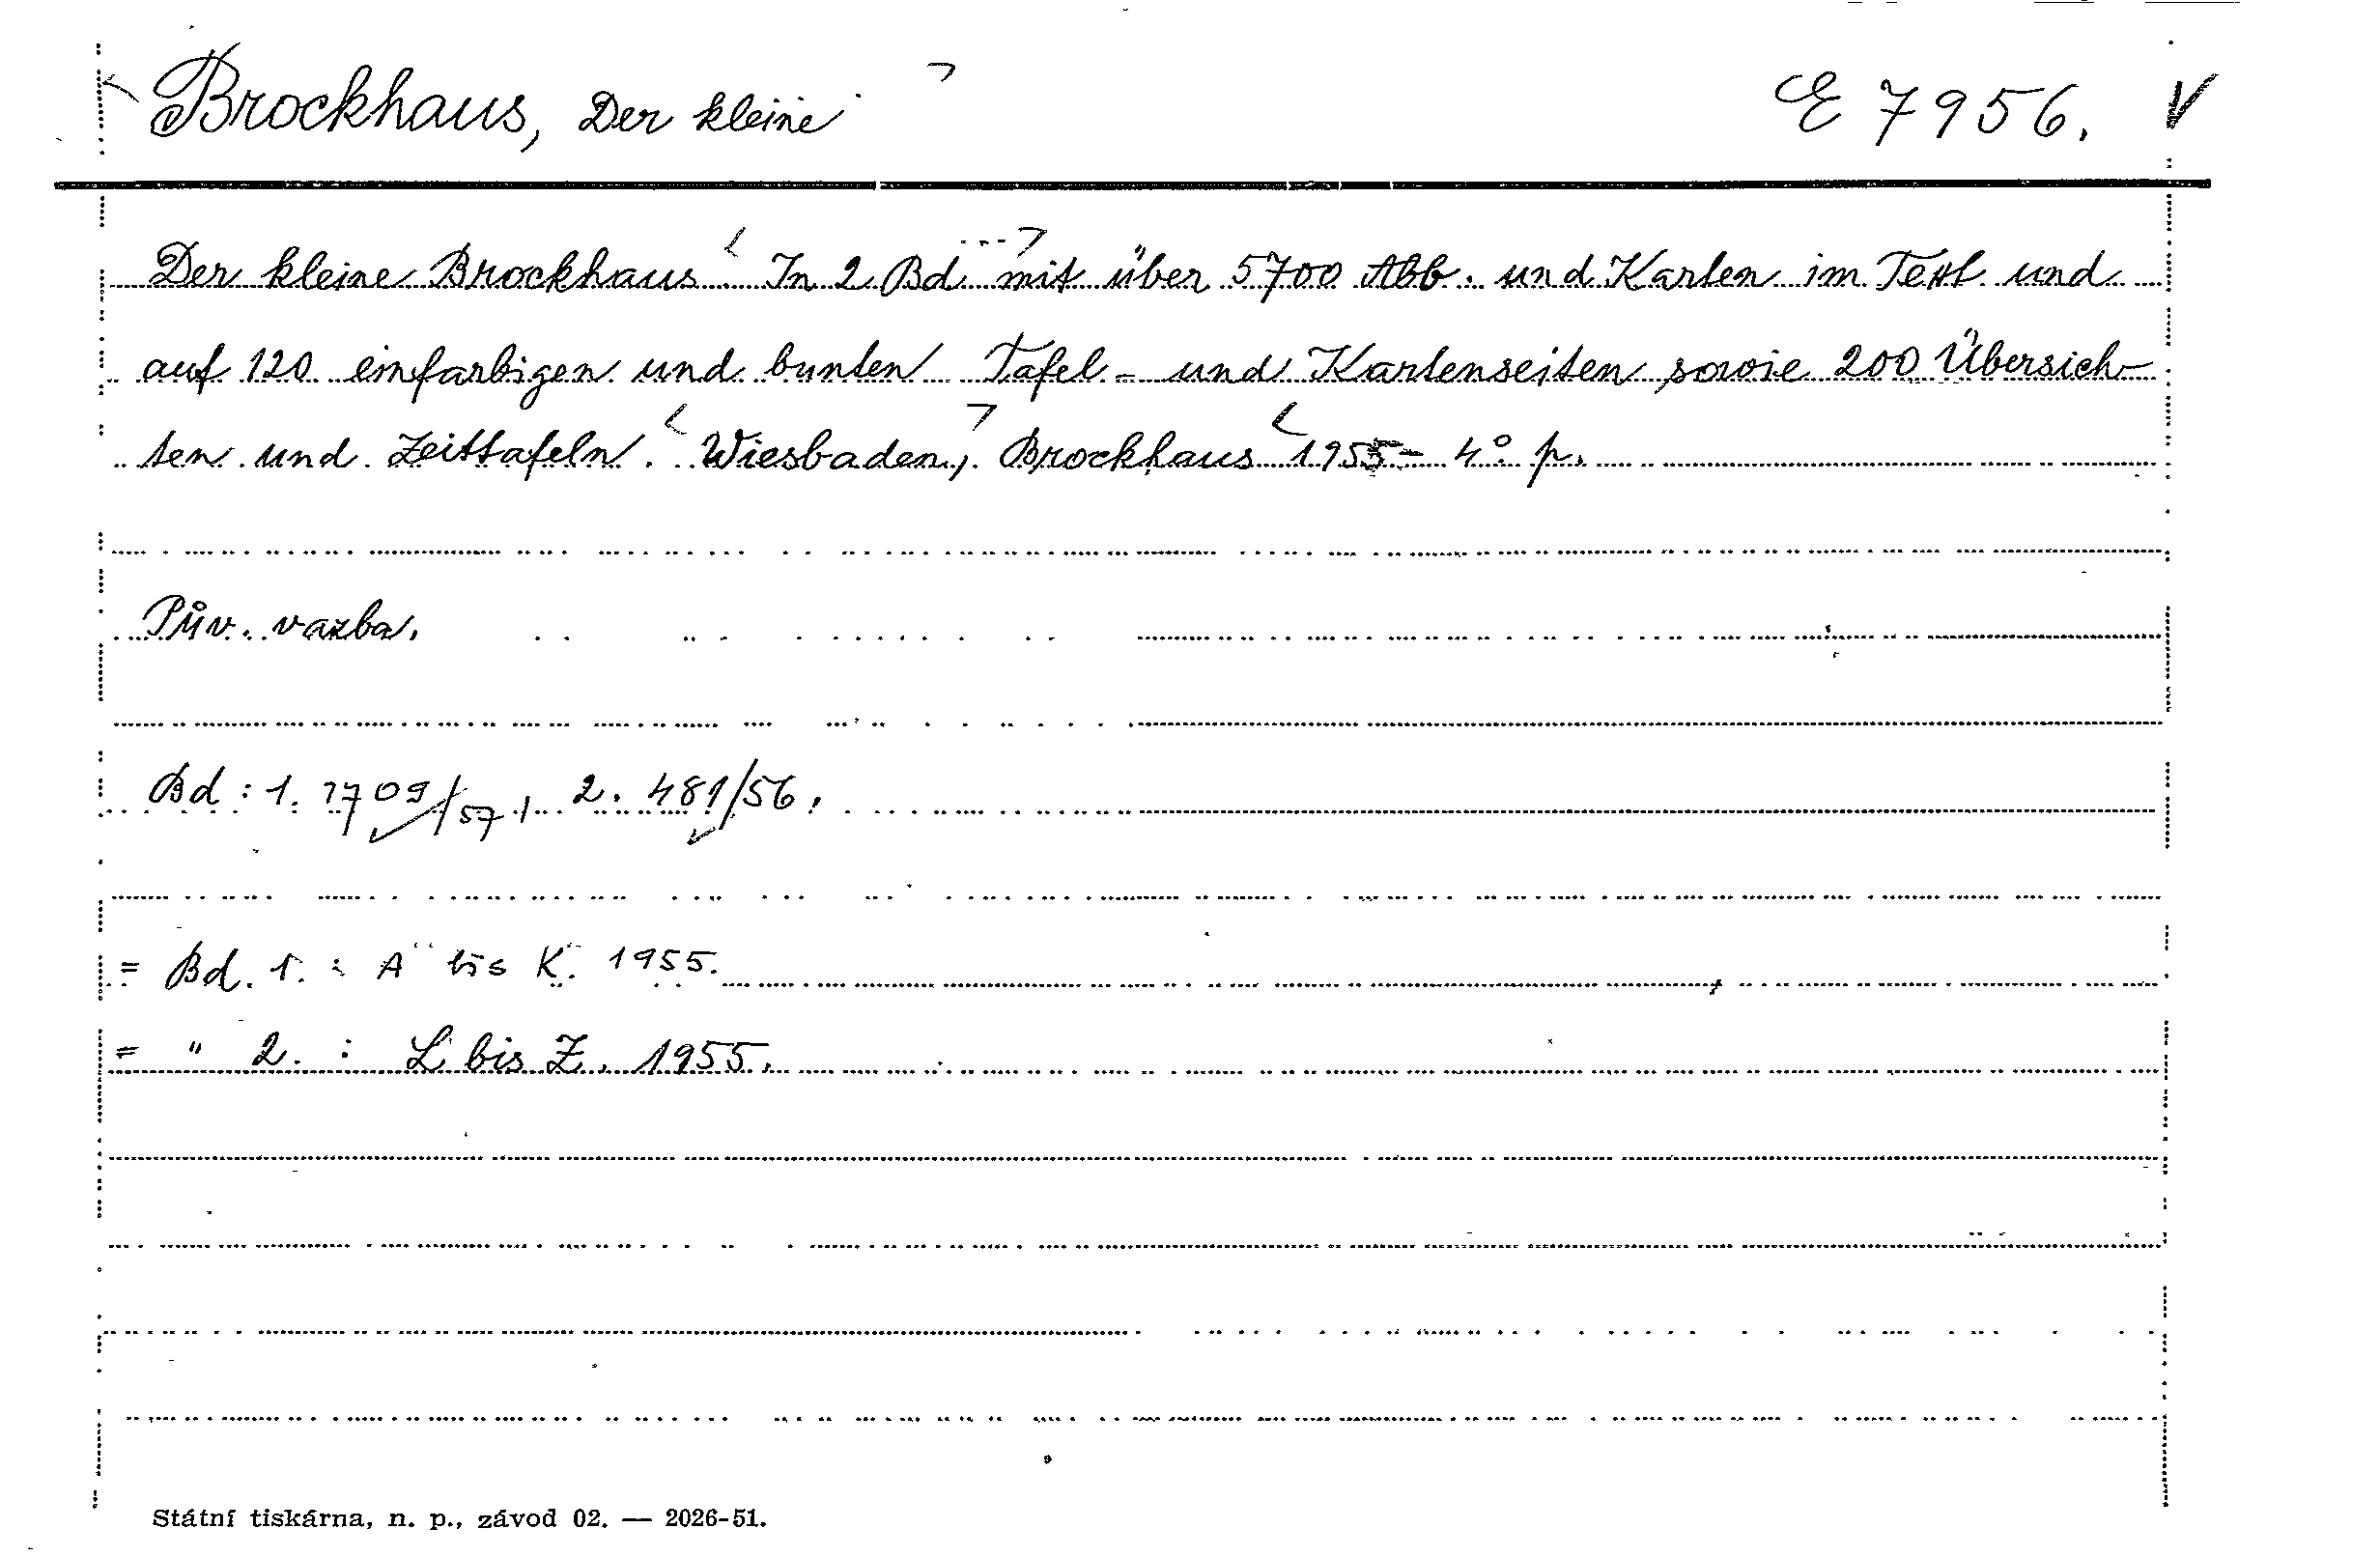 Brockhaus, Der kleine E 7956. V
Der kleine Brockhaus. In 2 Bd mit über 5700 Abb. und Karten im Text und
auf 120 einfarbigen und bunten Tafel- und Kartenseiten sowie 200 Übersich-
ten und Zeittafeln. Wiesbaden, Brockhaus 1955- 4° p.
Pův. vazba.
Bd: 1. 1709/57, 2. 481/56.
= Bd. 1. : A bis K. 1955.
= " 2. : L bis Z. 1955.
Státní tiskárna, n. p., závod 02. — 2026-51.